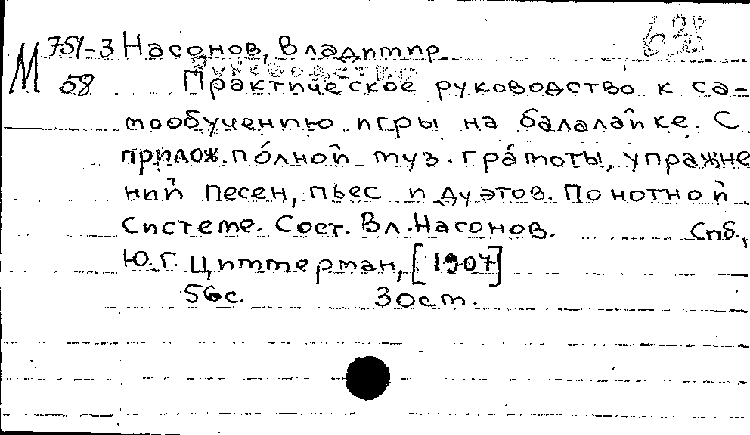 М 751-3 Насонов, Владимир
58 Практическое руководство к са-
мообучению игры на балалайке. С
прилож. полной муз. грамоты, упражне
ний песен, пьес и дуэтов. По нотной
системе. Сост. Вл. Насонов. Спб.,
Ю.Г. Циммерман, [1907]
56с. 30см.